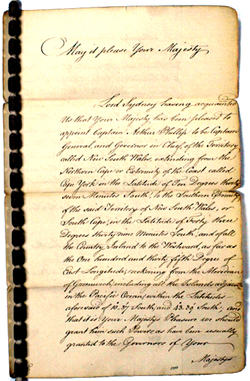 May it please Your Majesty
Lord Sydney having acquainted
Us that Your Majesty has been pleased to
appoint Captain Arthur Phillip to be Captain
General and Governor in Chief of the Territory
called New South Wales extending from the
Northern Cape or Extremity of the Coast called
Cape York in the Latitude of Ten Degrees thirty
seven Minutes South, to the Southern Extremity
of the said Territory of New South Wales, or
South Cape, in the Latitude of Forty three
Degrees thirty nine Minutes South, and of all
the Country Inland to the Westward, as far as
the One hundred and thirty fifth Degree of
East Longitude, reckoning from the Meridian
of Greenwich, including all the Islands adjacent
in the Pacific Ocean, within the Latitudes
aforesaid of 10.37 South, and 43.39 South, and
that it is Your Majesty's Pleasure We should
grant him such Powers as have been usually
granted to the Governors of Your
Majesty's